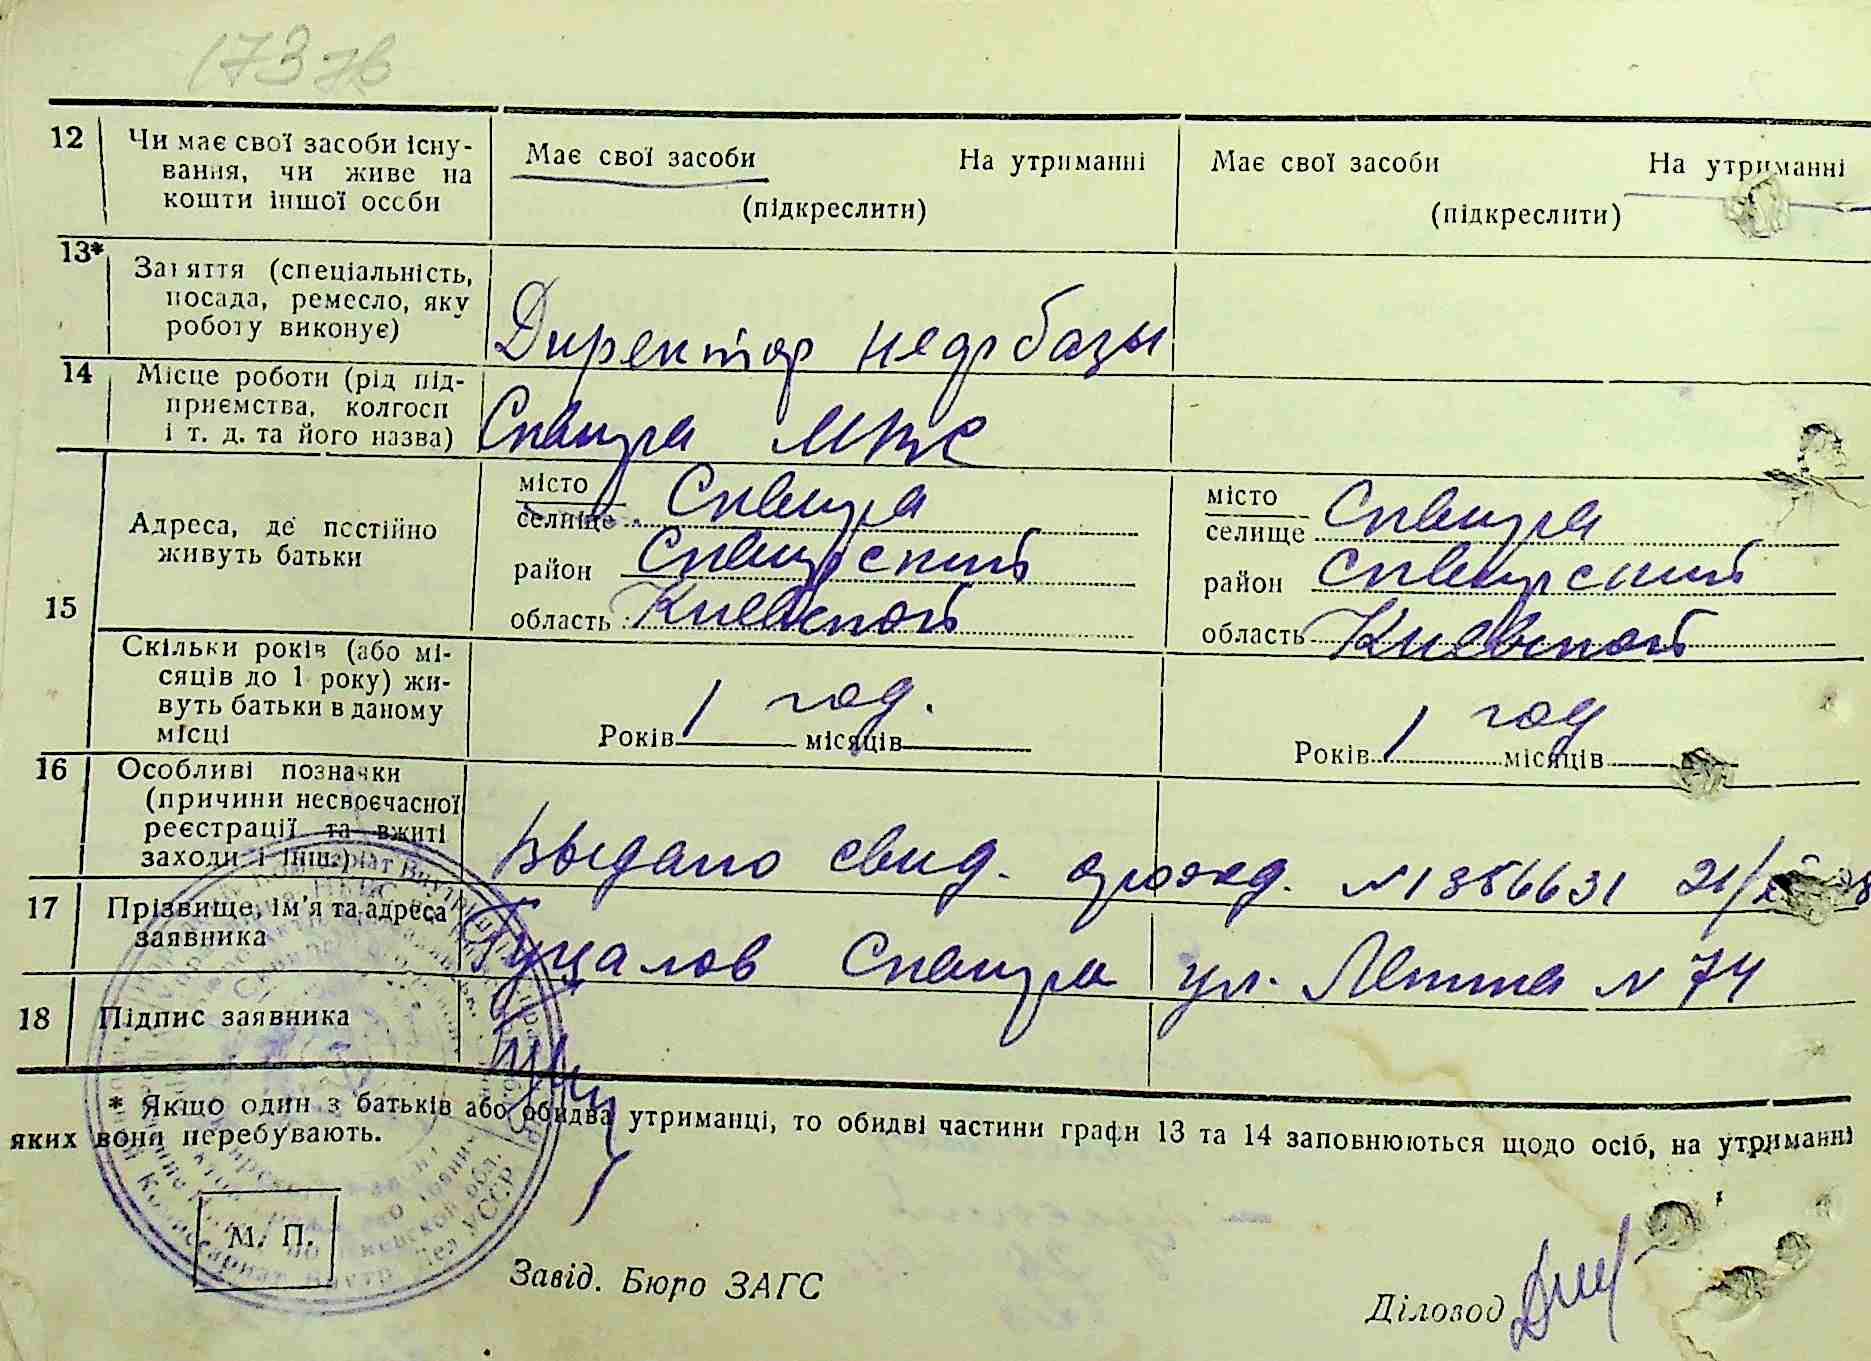 12 Чи має свої засоби існу-
вання, чи живе на
кошти іншої особи
Має свої засоби На утриманні
(підкреслити)
Має свої засоби На утриманні
(підкреслити)
13* Заняття (спеціальність,
посада, ремесло, яку
роботу виконує)
Директор базы
14 Місце роботи (рід під-
приємства, колгосп
і т. д. та його назва)
Сквира
15 Адреса, де постійно
живуть батьки
місто Сквира
селище
район Сквирский
область Киевской
місто Сквира
селище
район Сквирский
область Киевской
Скільки років (або мі-
сяців до 1 року) жи-
вуть батьки в даному
місці
Років 1 год. місяців
Років 1 год місяців
16 Особливі позначки
(причини несвоєчасної
реєстрації та вжиті
заходи і інш.)
Выдано свид. о рожд. №1356631 21/
17 Прізвище, ім'я та адреса
заявника
Гуцалов Сквира ул. Ленина №74
18 Підпис заявника
* Якщо один з батьків або обидва утриманці, то обидві частини графи 13 та 14 заповнюються щодо осіб, на утриманні
яких вони перебувають.
М. П.
Завід. Бюро ЗАГС
Діловод